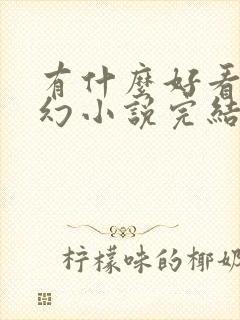 有什麼好看
幻小說完結
柠檬味的椰奶